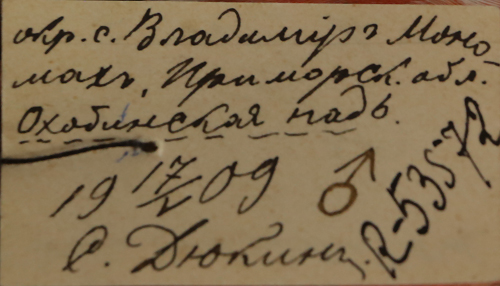 окр. с. Владимiръ Моно
махъ, Приморск. обл.
Охобинская падь.
19 17/V 09 ♂
С. Дюкинъ.
R-535/2